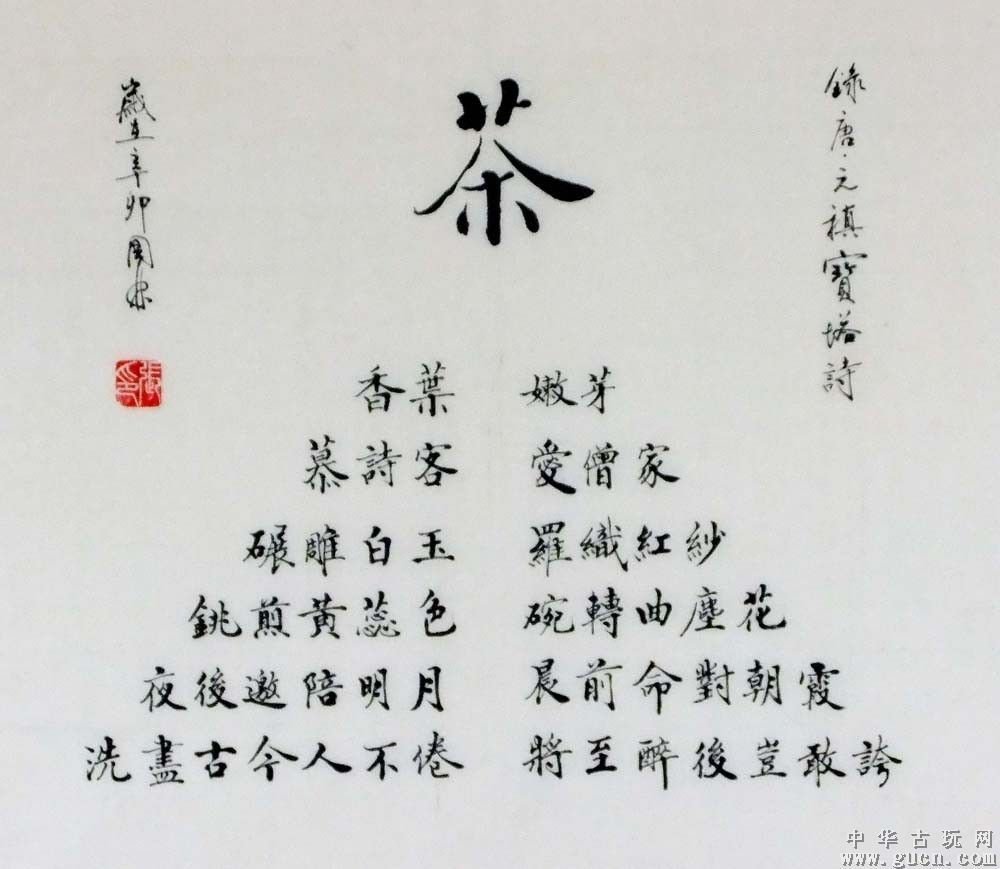 錄唐·元稹寶塔詩
茶
香葉 嫩芽
慕詩客 愛僧家
碾雕白玉 羅織紅紗
銚煎黃蕊色 碗轉曲塵花
夜後邀陪明月 晨前命對朝霞
洗盡古今人不倦 將至醉後豈敢誇
歲在辛卯
中华古玩网
www.gucn.com